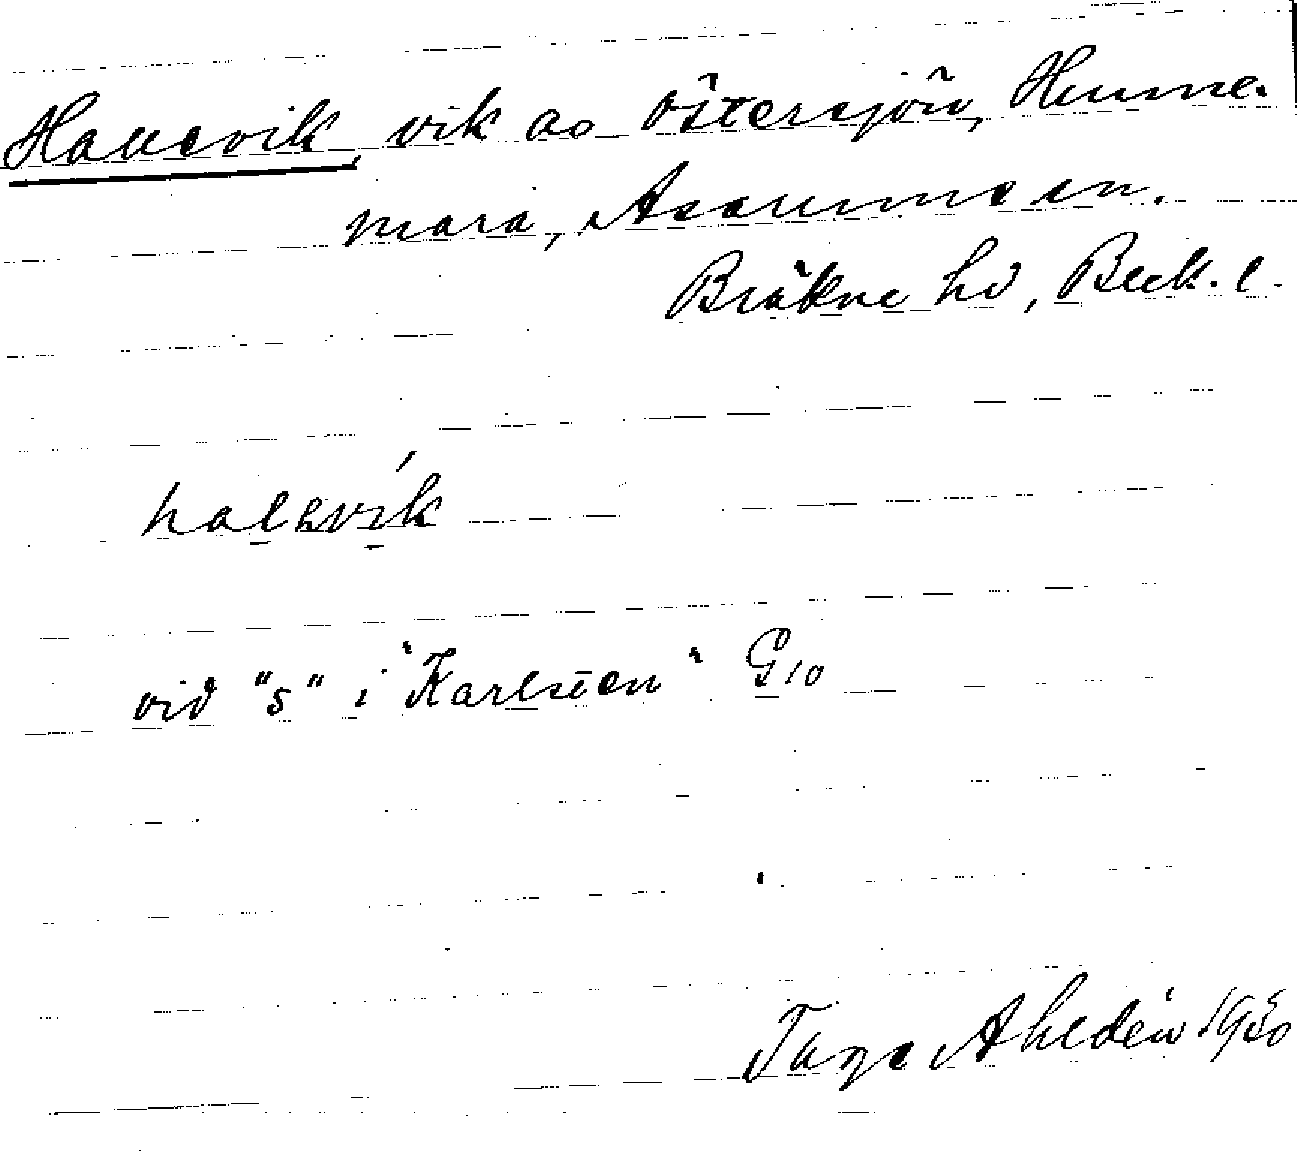 Hallsvik, vik av Östersjön, Hunne-
mara, Asarums sn.
Bräkne hd, Blek. l.
vid "s" i "Karlsten" G10
Tage Ahldén 1950